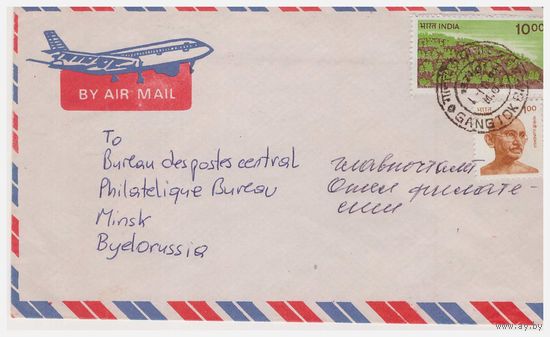 भारत INDIA
10.00
BY AIR MAIL
GANGTOK
भारत
1.00
To
Bureau des postes central
Philatelique Bureau
Minsk
Byelorussia
главпочтамт
Отел филате-
лии
www.ay.by